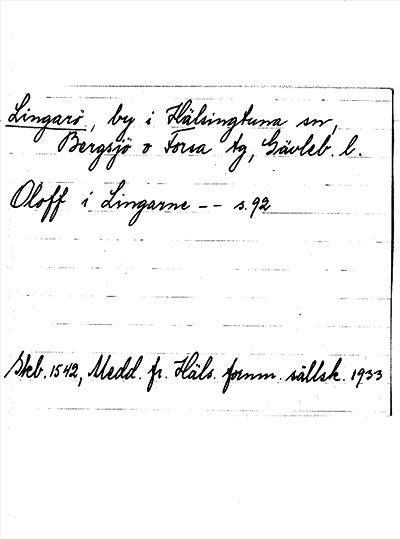 Lingarö, by i Hälsingtuna sn,
Bergsjö o Forsa tg, Gävleb. l.
Oloff i Lingarne -- s. 92
Skb. 1542, Medd. fr. Häls. fornm. sällsk. 1933